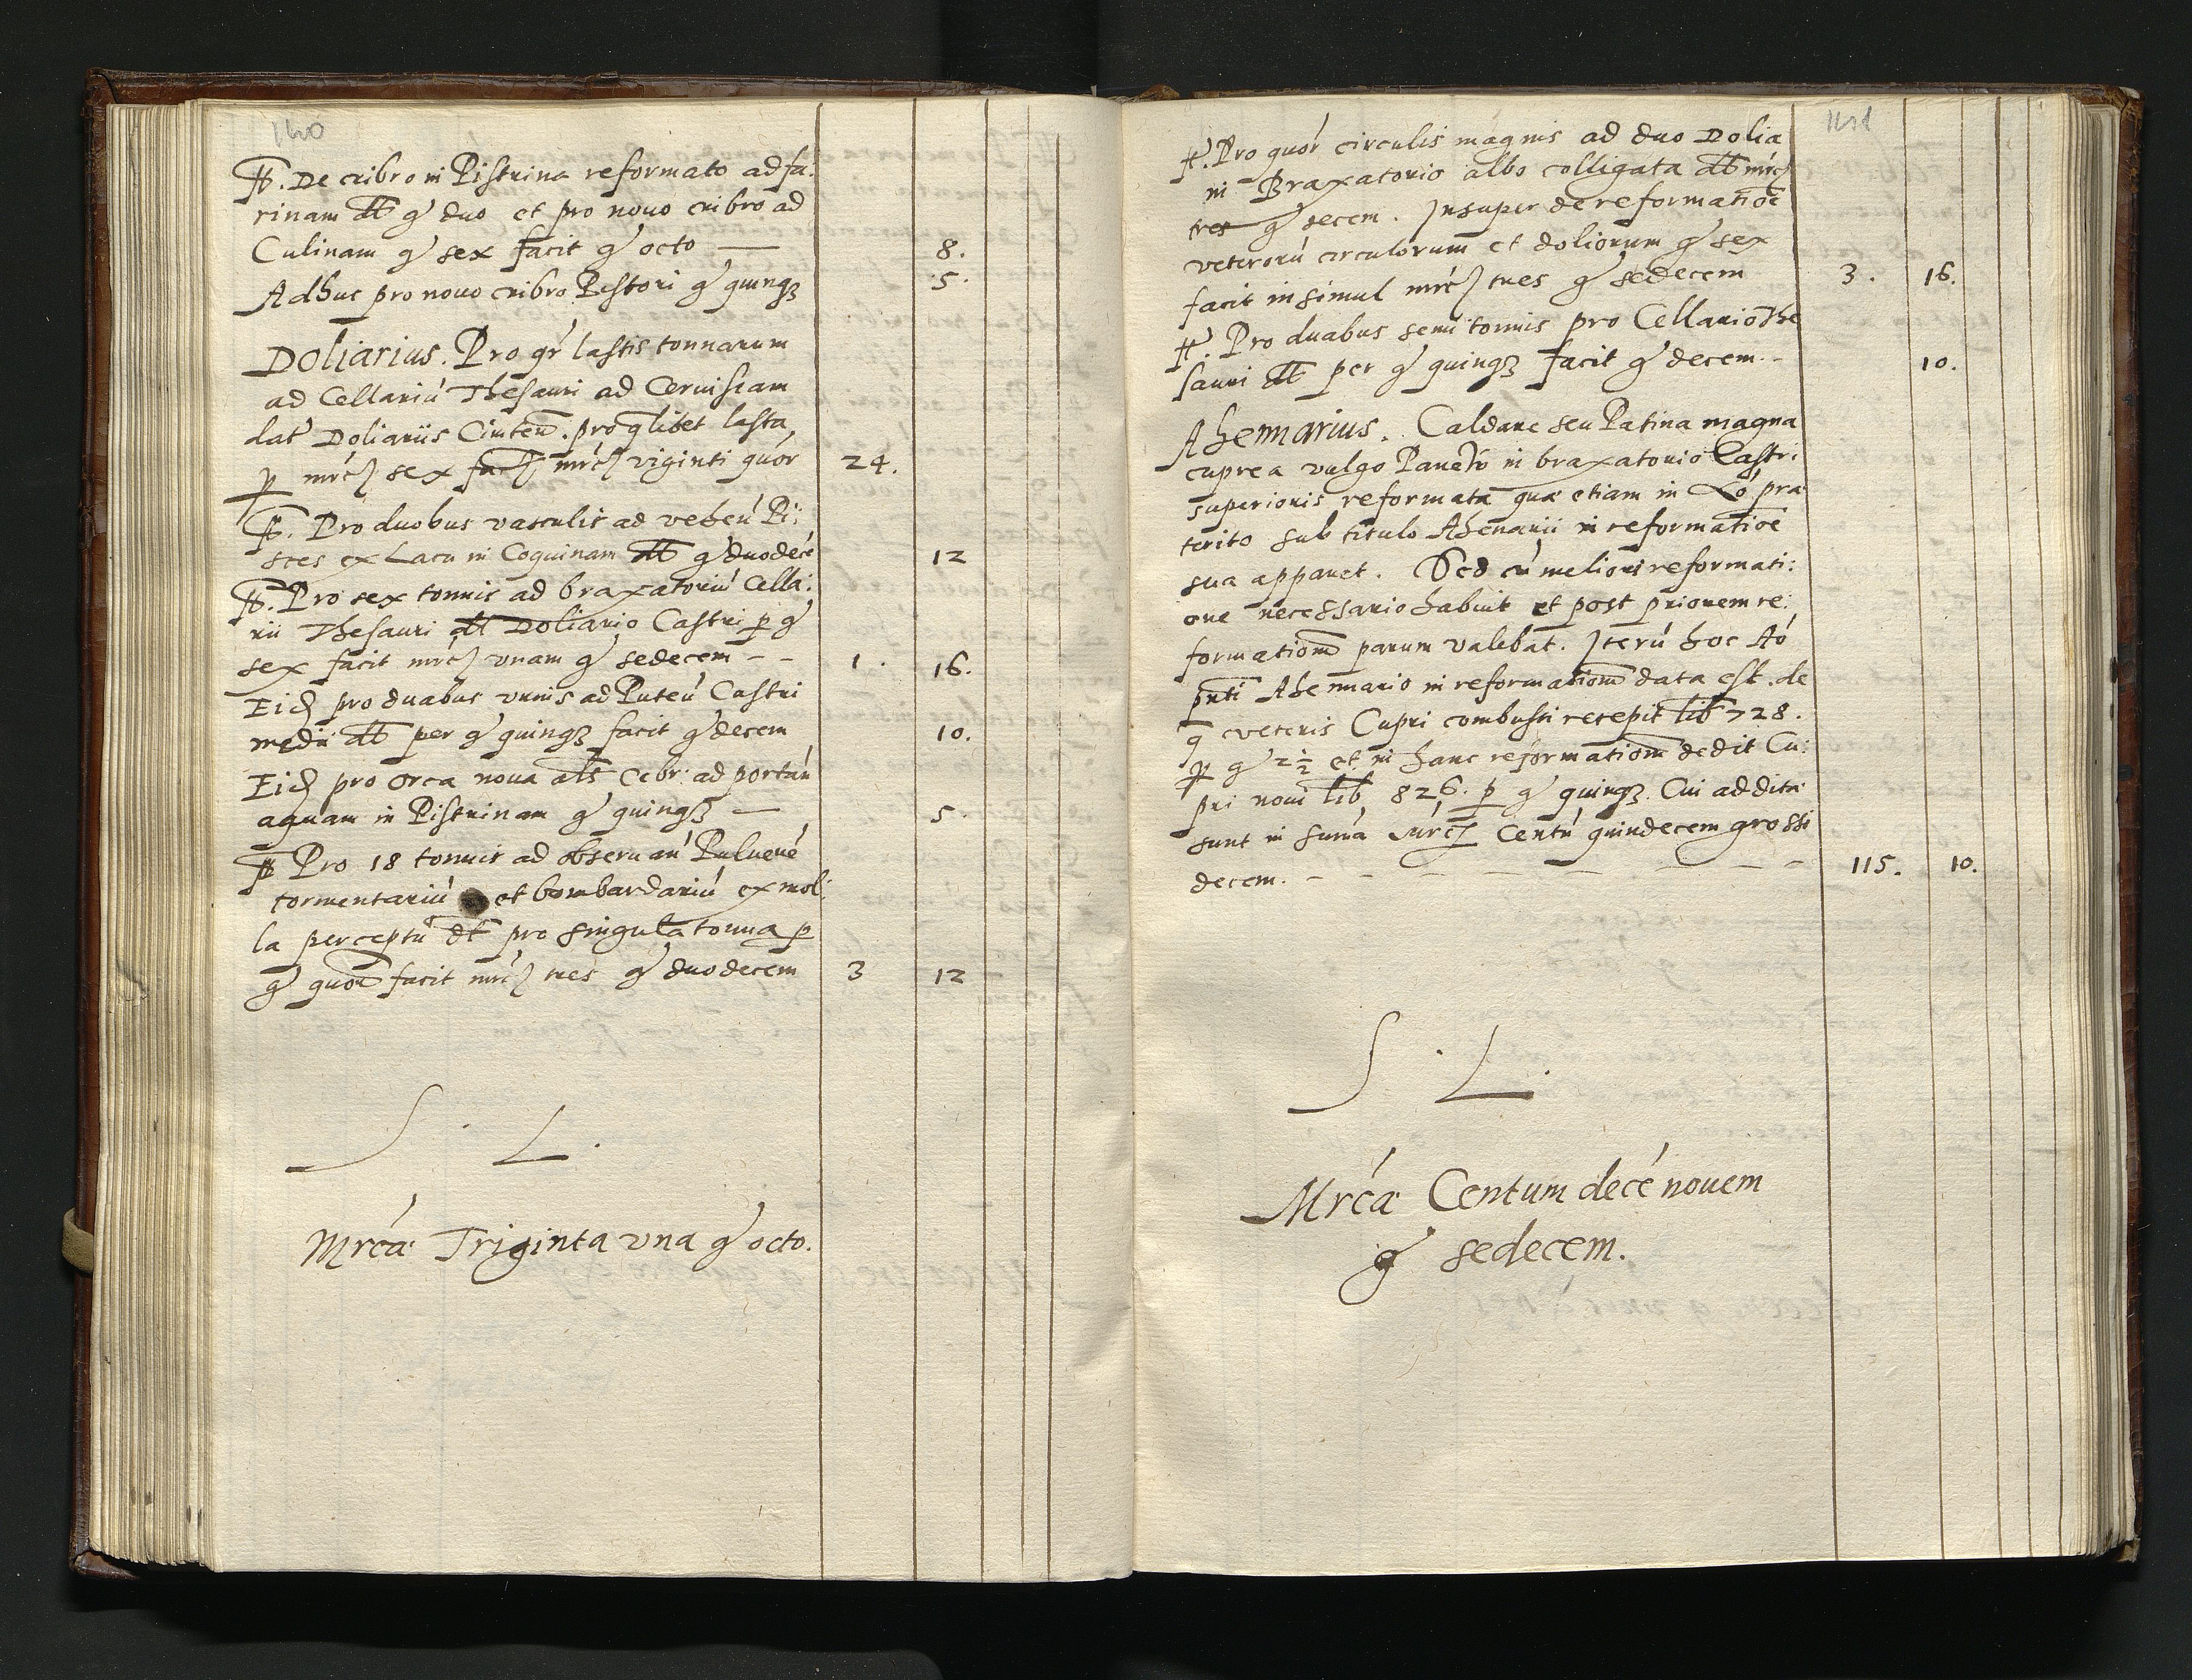 140
Jt. De cribro in Pistrina reformato ad fa:
rinam dt g duo et pro nouo cribro ad
Culinam g sex facit g octo — 8.
Adhuc pro nouo cribro Pistori g quinqȝ 5.
Doliarius. Pro qr lastis tonnarum
ad Cellariú Thesauri ad Ceruisiam
dat Doliariis Ciuiten. pro qlibet lasta,
p mrc sex facᷤ mrc viginti quór 24.
Jt. Pro duobus vasculis ad veheń Pi:
sces ex Lacu in Coquinam dt g duodecé 12
Jt. Pro sex tonnis ad braxatoriú Cella:
rii Thesauri dt Doliario Castri p g
sex facit mrc vnam g sedecem - - 1. 16.
Eid pro duabus vrnis ad Puteú Castri
medii dt per g quinqȝ facit g decem 10.
Eid pro orca noua als Cebr: ad portań
aquam in Pistrinam g quinqȝ — 5.
Jt Pro 18 tonnis ad obseruań Puluené
tormentariú et bombardariú ex mol:
la perceptú dt pro singula tonna p
g quor facit mrc tres g duodecem 3 12
S. L.
Mrcæ Triginta vna g octo.
141
Jt. Pro quór circulis magnis ad duo Dolia
in Braxatorio albo colligata dt mrc
tres g decem. Insuper de reformatioē
veterorú circulorum et doliorum g sex
facit insimul mrc tres g sedecem 3. 16.
Jt. Pro duabus semi tonnis pro Cellario The
sauri dt per g quinqȝ facit g decem.- 10.
Ahennarius. Caldare seu Patina magna
cuprea vulgo Panew in braxatorio Castri
superioris reformata quæ etiam in Ao præ
terito sub titulo Ahenarii in reformatioē
sua apparet. Sed cú meliori reformati:
one necessario habuit et post priorem re:
formationē parum valebat. Iterú hoc Aó
pnti Ahennario in reformationē data est. de
q veteris Cupri combusti recepit lib 728.
p g 2½ et in hanc reformationē dedit Cu:
pri noui lib 826. p g quinqȝ. Cui addita
sunt in sumá mrc Centú quindecem grossi
decem. - - - - - - - - 115. 10.
S. L.
Mrcæ Centum decé nouem
g sedecem.